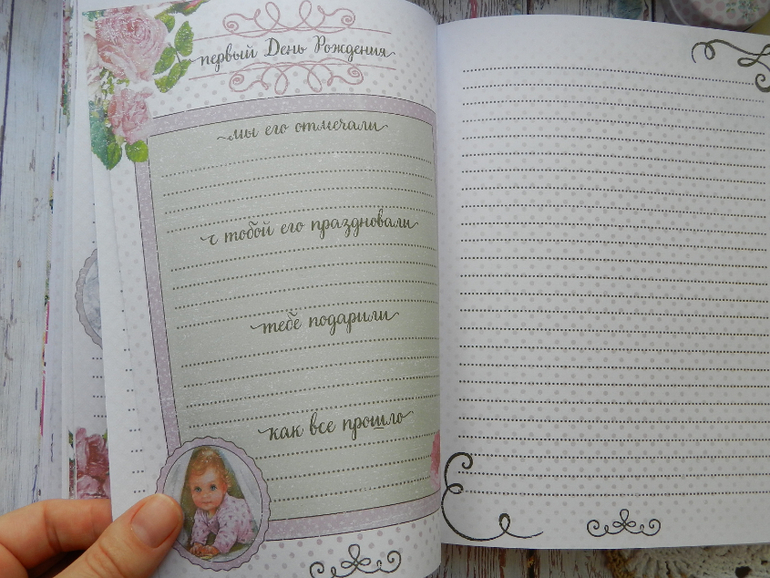 первый День Рождения
мы его отмечали
с тобой его праздновали
тебе подарили
как все прошло